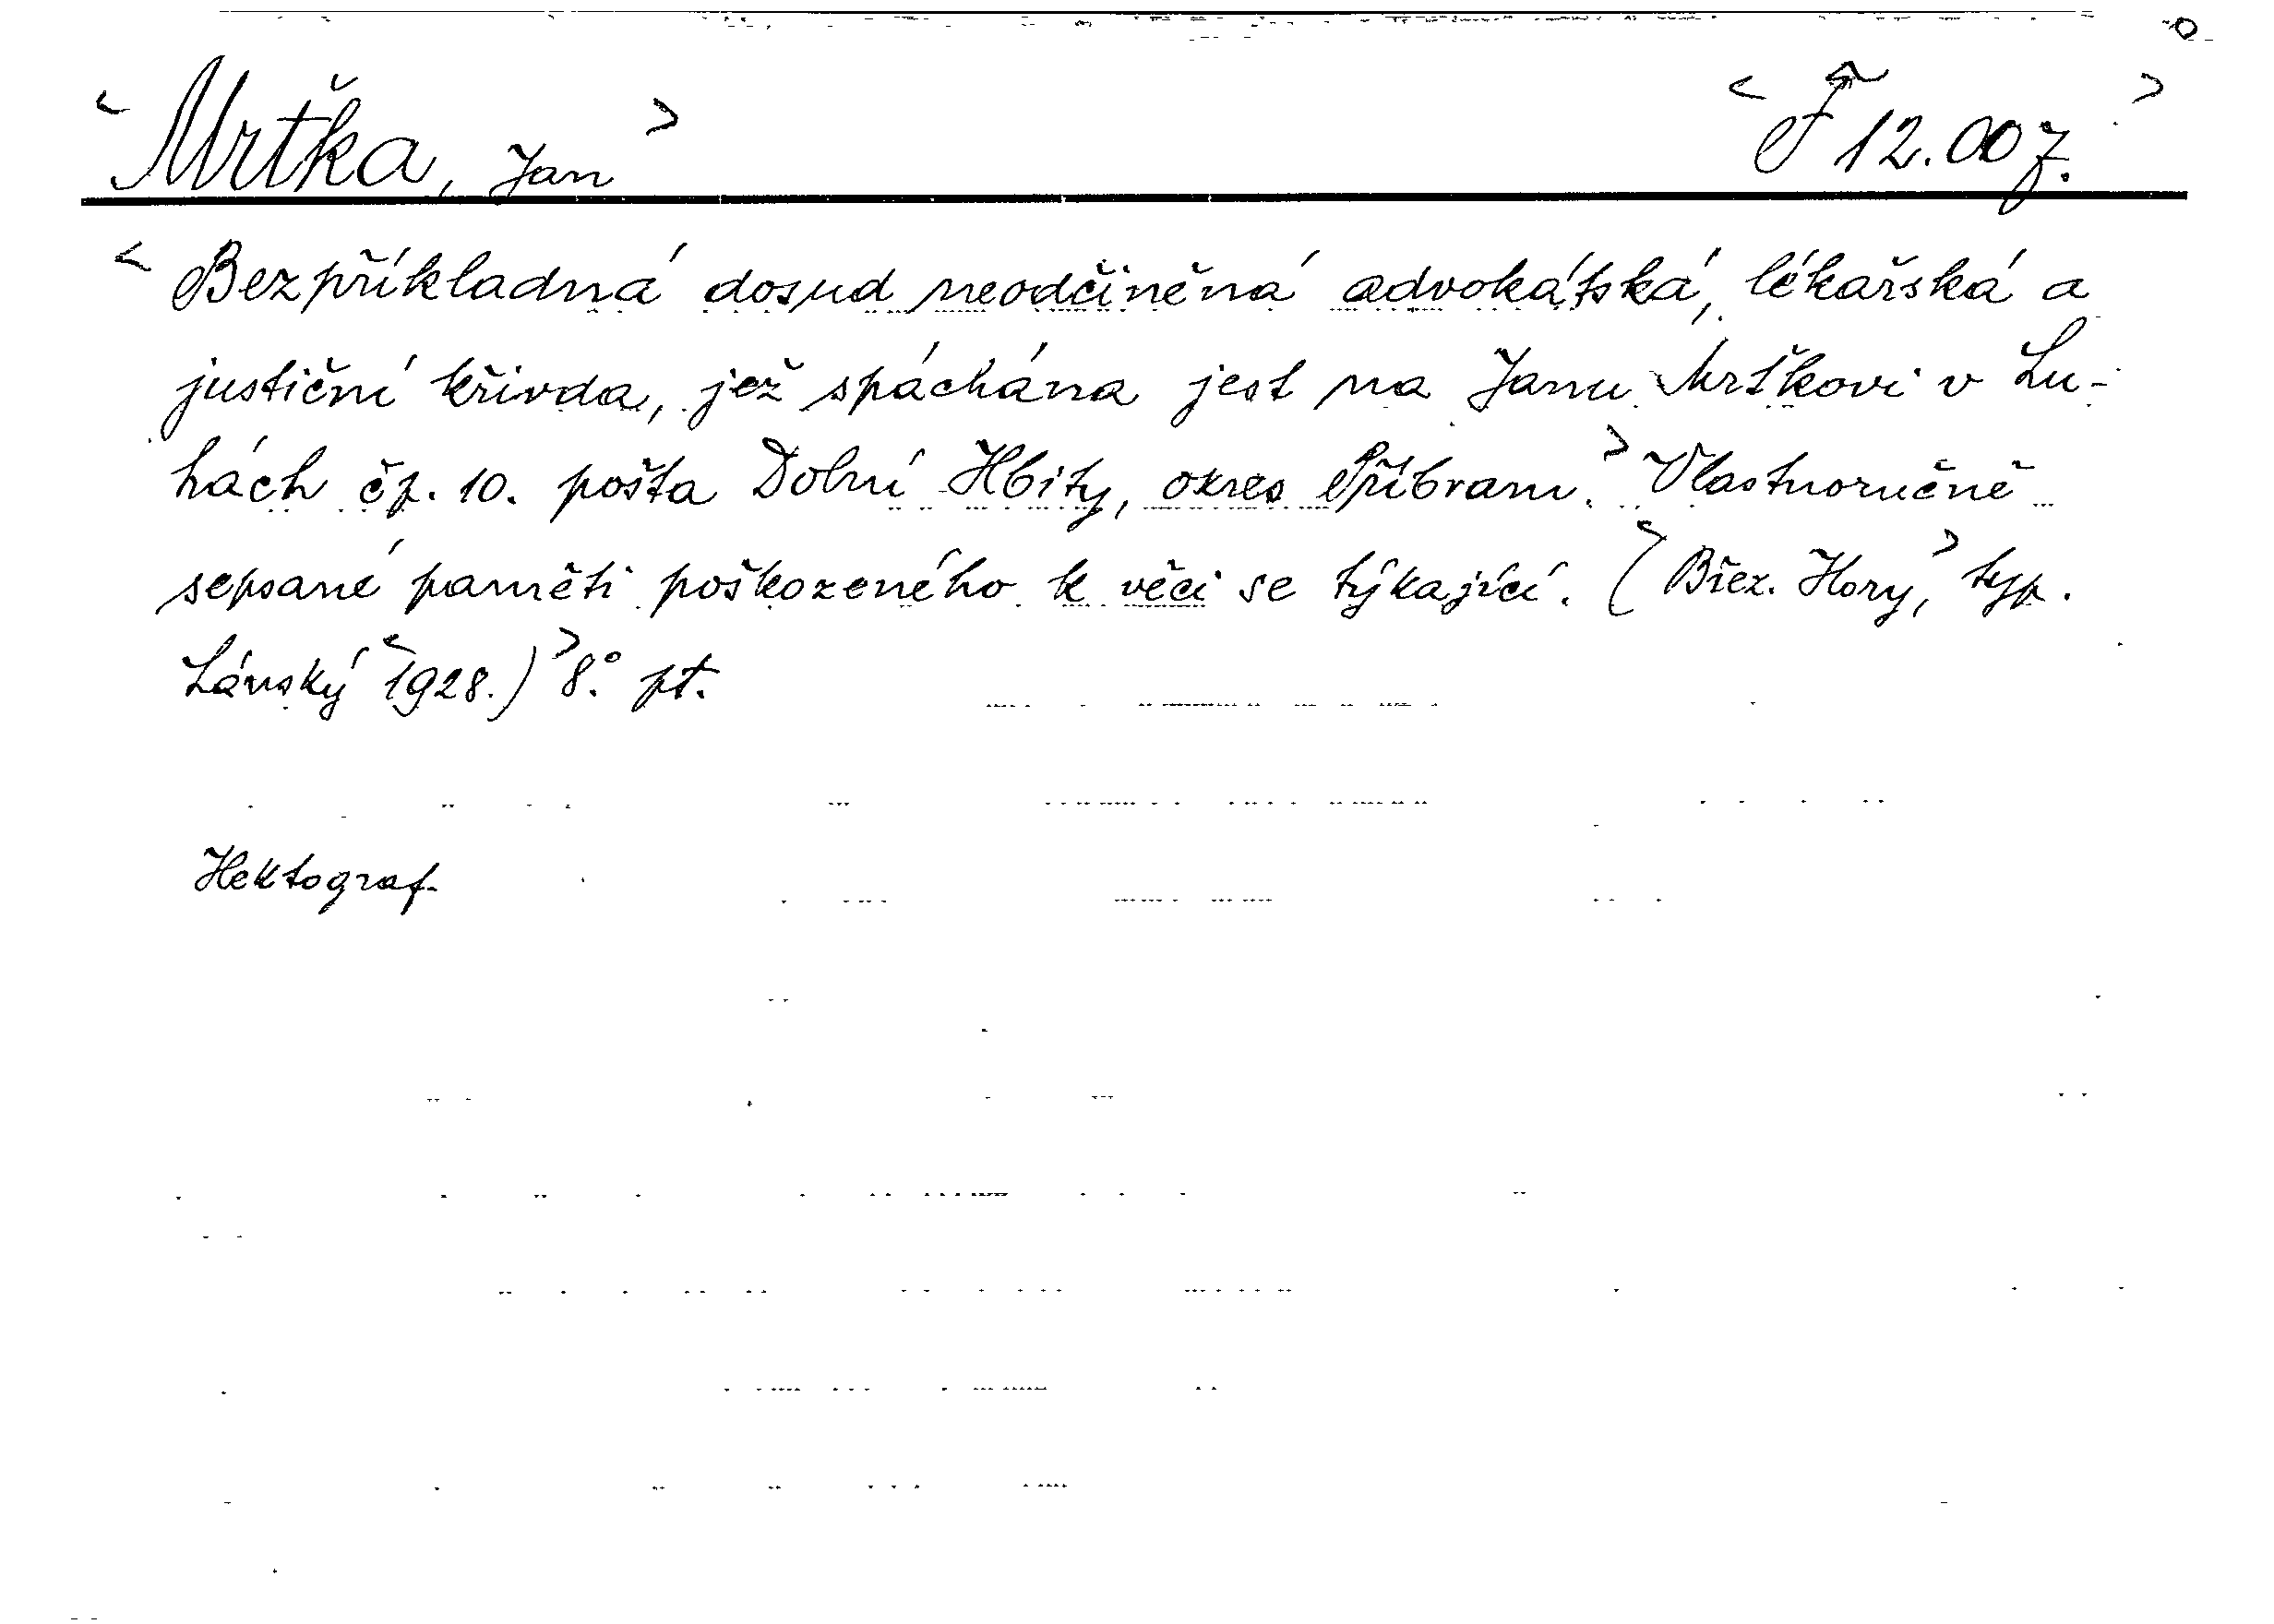 < Mrťka, Jan > < F 12.007. >
< Bezpříkladná dosud neodčiněná advokátská, lékařská a
justiční křivda, jež spáchána jest na Janu Mrťkovi v Lu-
hách čp. 10. pošta Dolní Hbity, okres Příbram. > Vlastnoručně
sepsané paměti poškozeného k věci se týkající. ( < Břez. Hory, > typ.
Lánský < 1928.) > 8°. pt.
Hektograf.